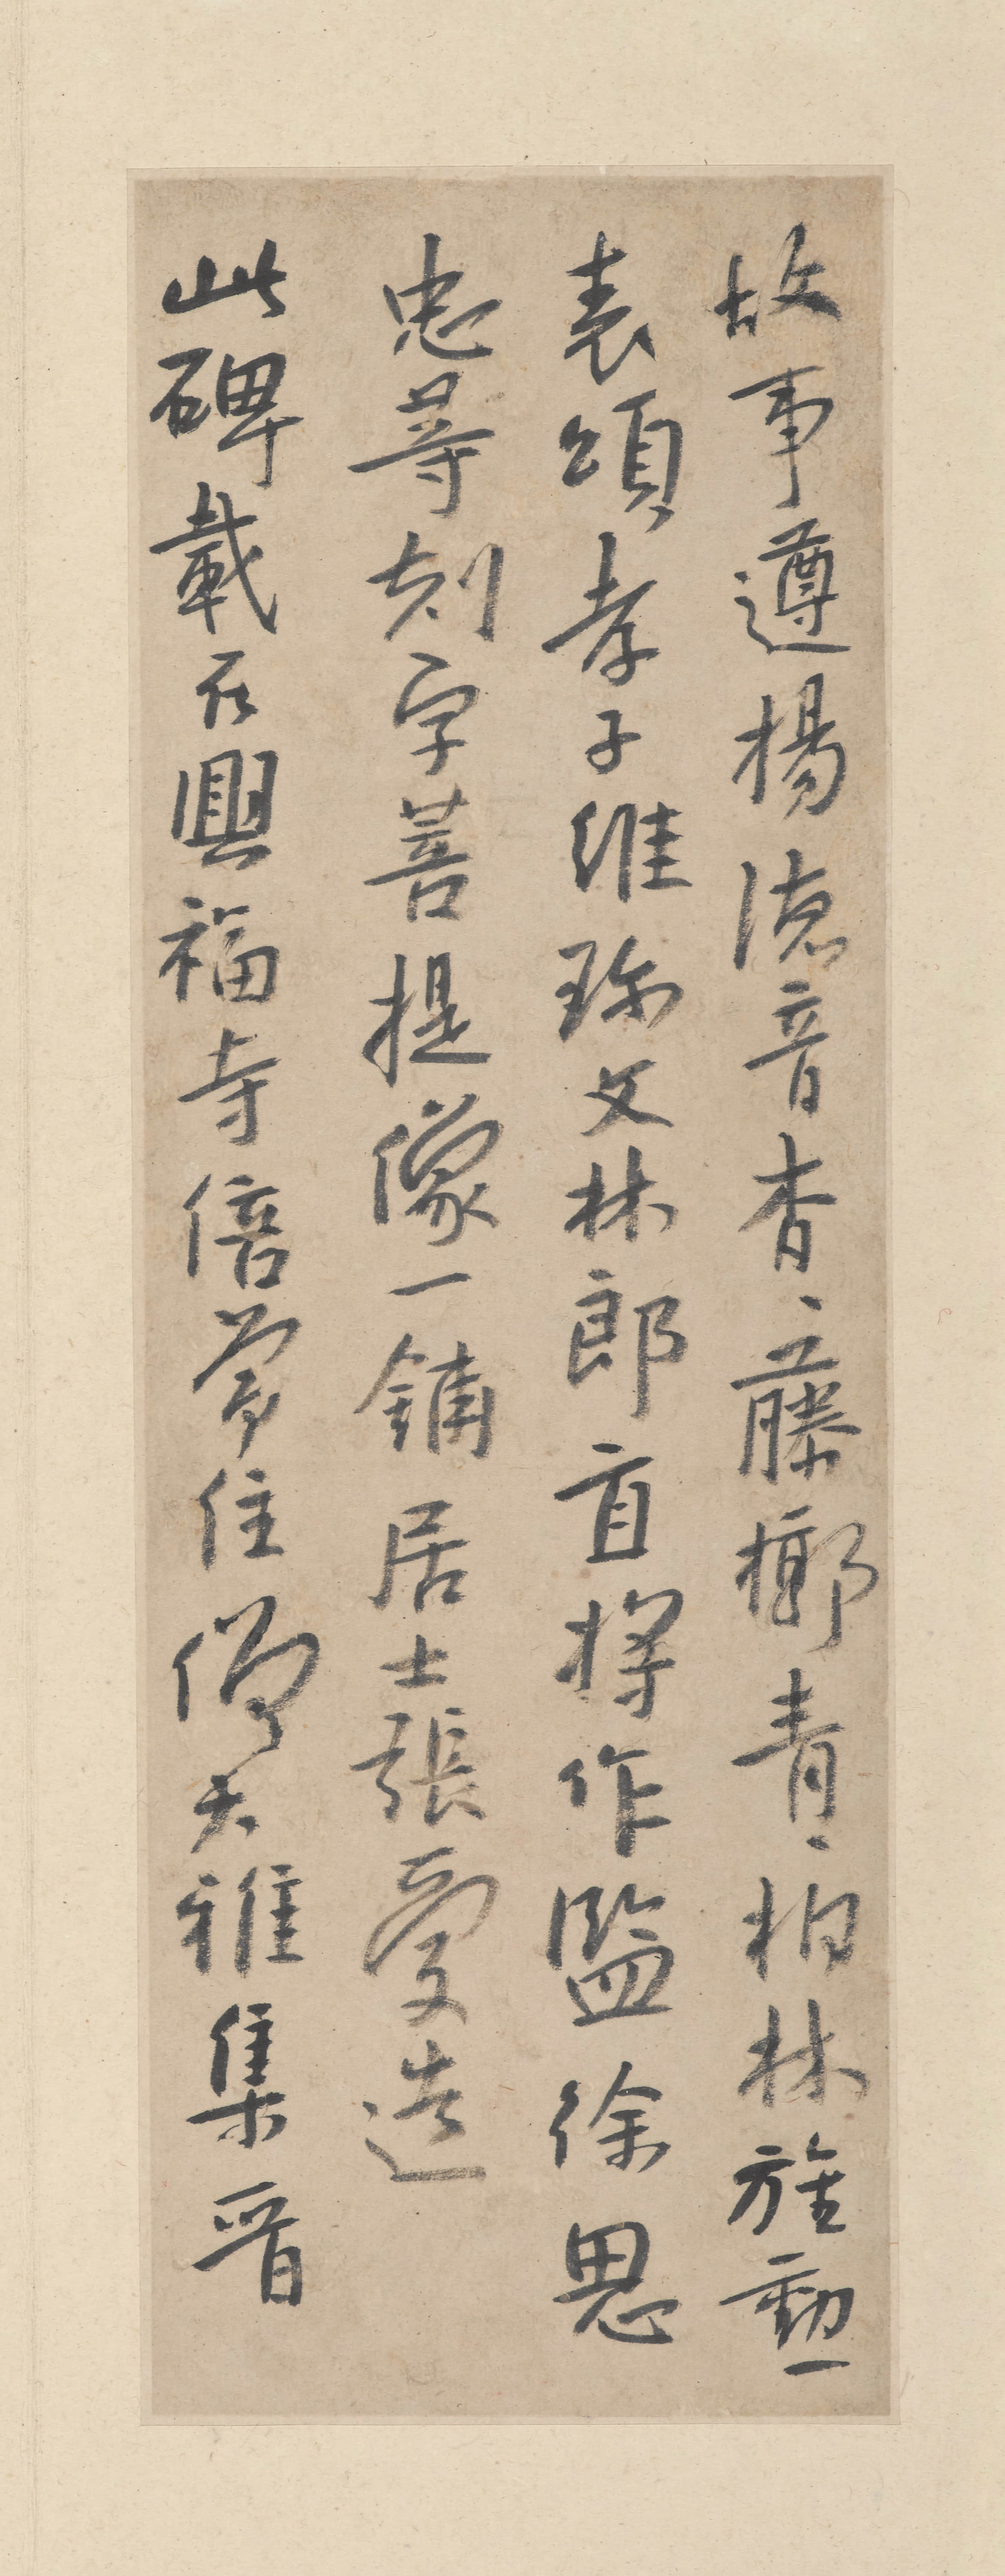 故事遵揚德音杳、藤槨青、柏林旌勳
表頌孝子維珎文林郎直將作監徐思
忠等刻字菩提像一鋪居士張愛造
此碑載在興福寺倍常住僧大雅集晉